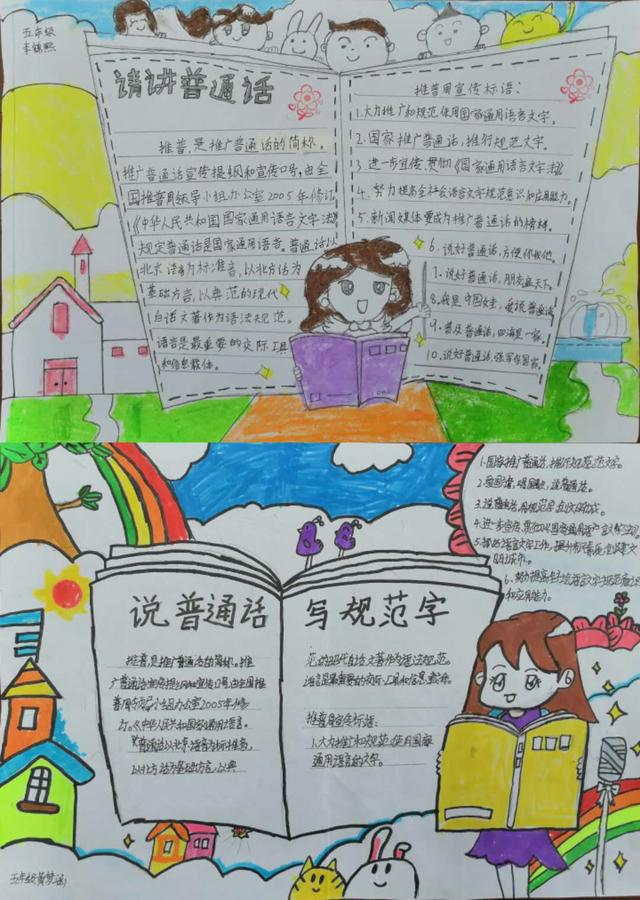 五年级
李锦熙
请讲普通话
推普,是推广普通话的简称。
推广普通话宣传提纲和宣传口号,由全
国推普周领导小组办公室2005年修订,
《中华人民共和国国家通用语言文字法》
规定普通话是国家通用语言。普通话以
北京语音为标准音,以北方话为
基础方言,以典范的现代
白话文著作为语法规范。
语言是最重要的交际工具
和信息载体。
推普周宣传标语:
1.大力推广和规范使用国家通用语言文字。
2.国家推广普通话,推行规范文字。
3.进一步宣传、贯彻《国家通用语言文字法》
4.努力提高全社会语言文字规范意识和应用能力。
5.新闻媒体要成为推广普通话的榜样。
6.说好普通话,方便你我他。
7.说好普通话,朋友遍天下。
8.我是中国娃,爱说普通话
9.普及普通话,四海是一家。
10.说好普通话,
1.国家推广普通话,推行规范文字。
2.爱国旗,唱国歌,说普通话。
3.说普通话,用规范字
4.进一步宣传贯彻《国家通用语言文字法》
5.语言文字工作,
6.努力提高全社会语言文字规范意识
和应用能力。
说普通话 写规范字
推普,是推广普通话的简称。推
广普通话宣传提纲和宣传口号,由全国推
普周领导小组办公室2005年修
订。《中华人民共和国国家通用语言。
普通话以北京语音为标准音,
以北方话为基础方言,以典
范的现代白话文著作为语法规范。
语言是最重要的交际工具和信息载体。
推普周宣传标语:
1.大力推广和规范使用国家
通用语言的文字。
五年级黄梦涵